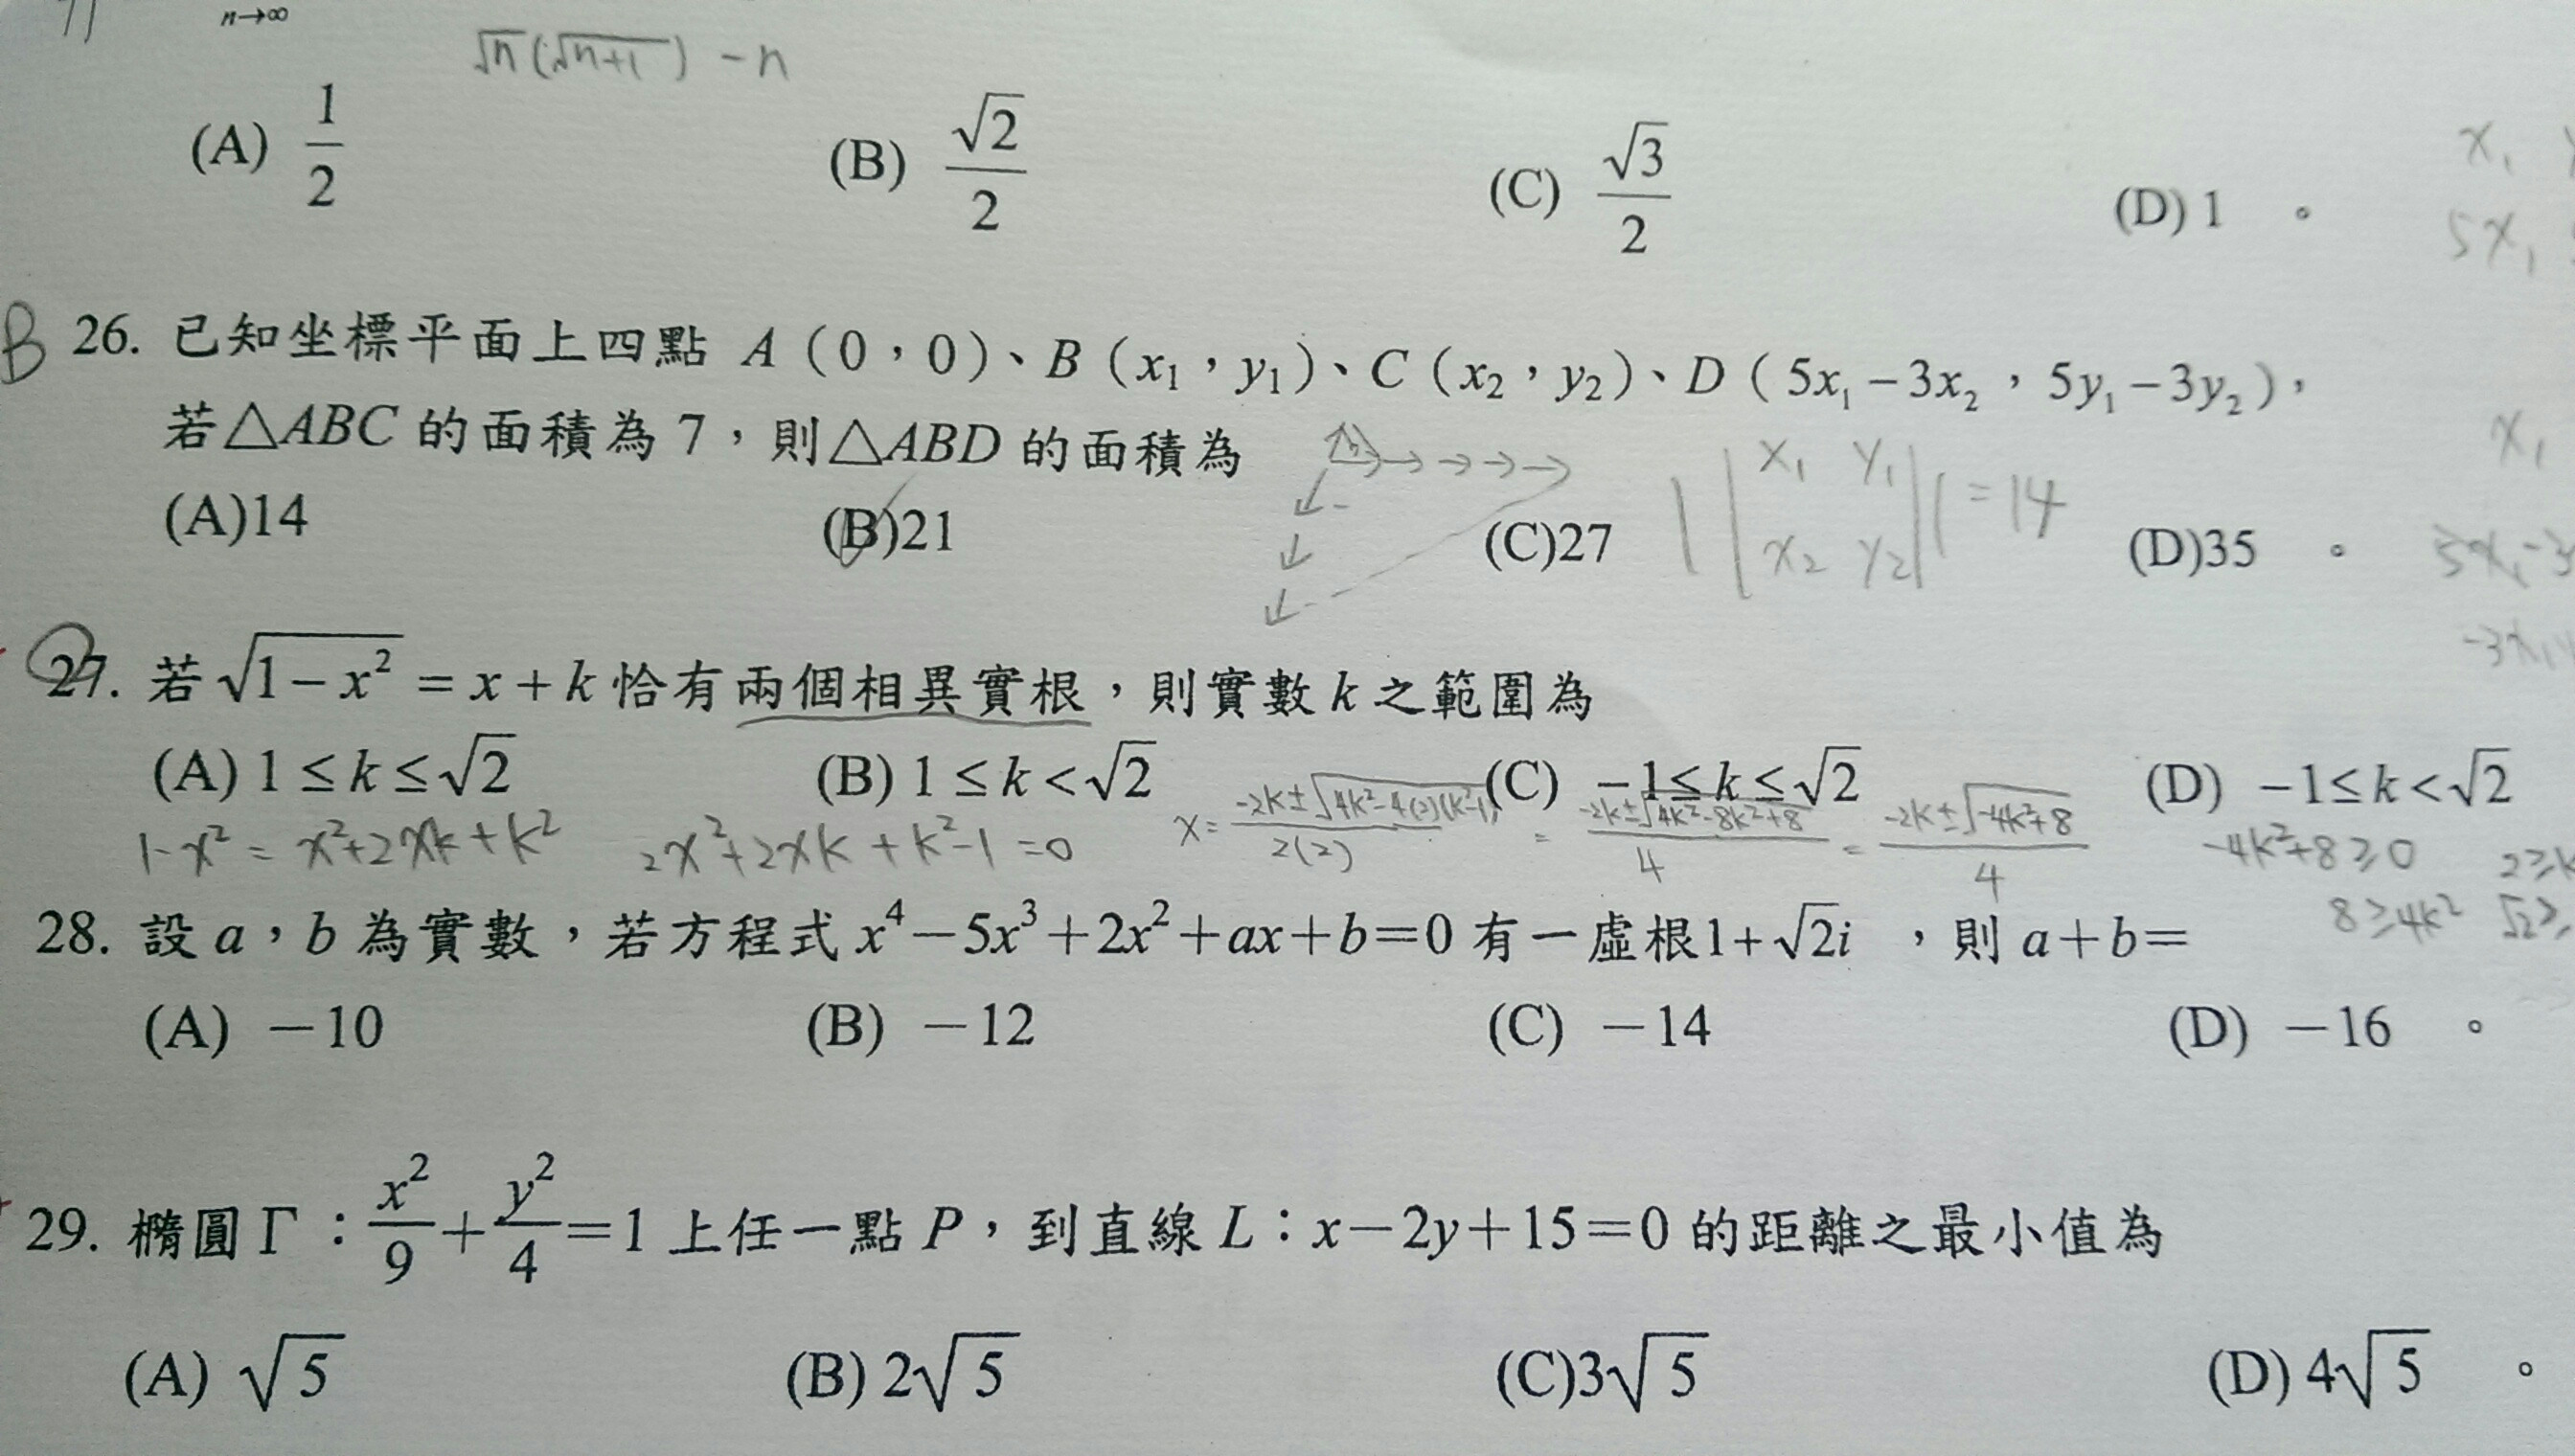 n→∞
√n(√n+1) − n
(A) 1/2 (B) √2/2 (C) √3/2 (D) 1 。
x₁
5x₁
B 26. 已知坐標平面上四點 A（0，0）、B（x₁，y₁）、C（x₂，y₂）、D（5x₁−3x₂，5y₁−3y₂），
若△ABC 的面積為 7，則△ABD 的面積為
(A)14 (B)21 (C)27 (D)35 。
| |x₁ y₁
x₂ y₂| | = 14
x₁
5x₁−3
−3x₁
27. 若 √(1−x²) = x + k 恰有兩個相異實根，則實數 k 之範圍為
(A) 1 ≤ k ≤ √2 (B) 1 ≤ k < √2 (C) −1 ≤ k ≤ √2 (D) −1 ≤ k < √2
1−x² = x²+2xk+k² 2x²+2xk+k²−1=0 x= (−2k±√(4k²−4(2)(k²−1)))/2(2) = (−2k±√(4k²−8k²+8))/4 = (−2k±√(−4k²+8))/4 −4k²+8≥0 2≥k
8≥4k² √2≥
28. 設 a，b 為實數，若方程式 x⁴−5x³+2x²+ax+b=0 有一虛根1+√2i ，則 a+b=
(A) −10 (B) −12 (C) −14 (D) −16 。
29. 橢圓 Γ：x²/9+y²/4=1 上任一點 P，到直線 L：x−2y+15=0 的距離之最小值為
(A) √5 (B) 2√5 (C)3√5 (D) 4√5 。